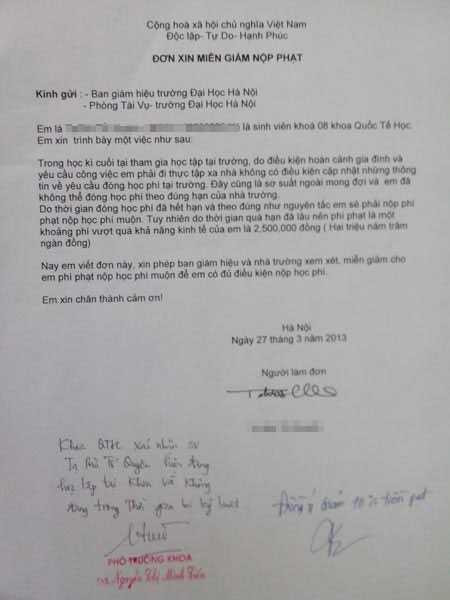 Cộng hoà xã hội chủ nghĩa Việt Nam
Độc lập- Tự Do- Hạnh Phúc
ĐƠN XIN MIỄN GIẢM NỘP PHẠT
Kính gửi : - Ban giám hiệu trường Đại Học Hà Nội
- Phòng Tài Vụ- trường Đại Học Hà Nội
Em là là sinh viên khoá 08 khoa Quốc Tế Học.
Em xin trình bày một việc như sau:
Trong học kì cuối tại tham gia học tập tại trường, do điều kiện hoàn cảnh gia đình và
yêu cầu công việc em phải đi thực tập xa nhà không có điều kiện cập nhật những thông
tin về yêu cầu đóng học phí tại trường. Đây cũng là sơ suất ngoài mong đợi và em đã
không thể đóng học phí theo đúng hạn của nhà trường.
Do thời gian đóng học phí đã hết hạn và theo đúng như nguyên tắc em sẽ phải nộp phí
phạt nộp học phí muộn. Tuy nhiên do thời gian quá hạn đã lâu nên phí phạt là một
khoảng phí vượt quá khả năng kinh tế của em là 2,500,000 đồng ( Hai triệu năm trăm
ngàn đồng)
Nay em viết đơn này, xin phép ban giám hiệu và nhà trường xem xét, miễn giảm cho
em phí phạt nộp học phí muộn để em có đủ điều kiện nộp học phí.
Em xin chân thành cảm ơn!
Hà Nội
Ngày 27 tháng 3 năm 2013
Người làm đơn
Khoa QTH xác nhận SV
học tập tại Khoa và không
trong thời gian bị kỷ luật
Đồng ý giảm tiền phạt
PHÓ TRƯỞNG KHOA
Nguyễn Thị Minh